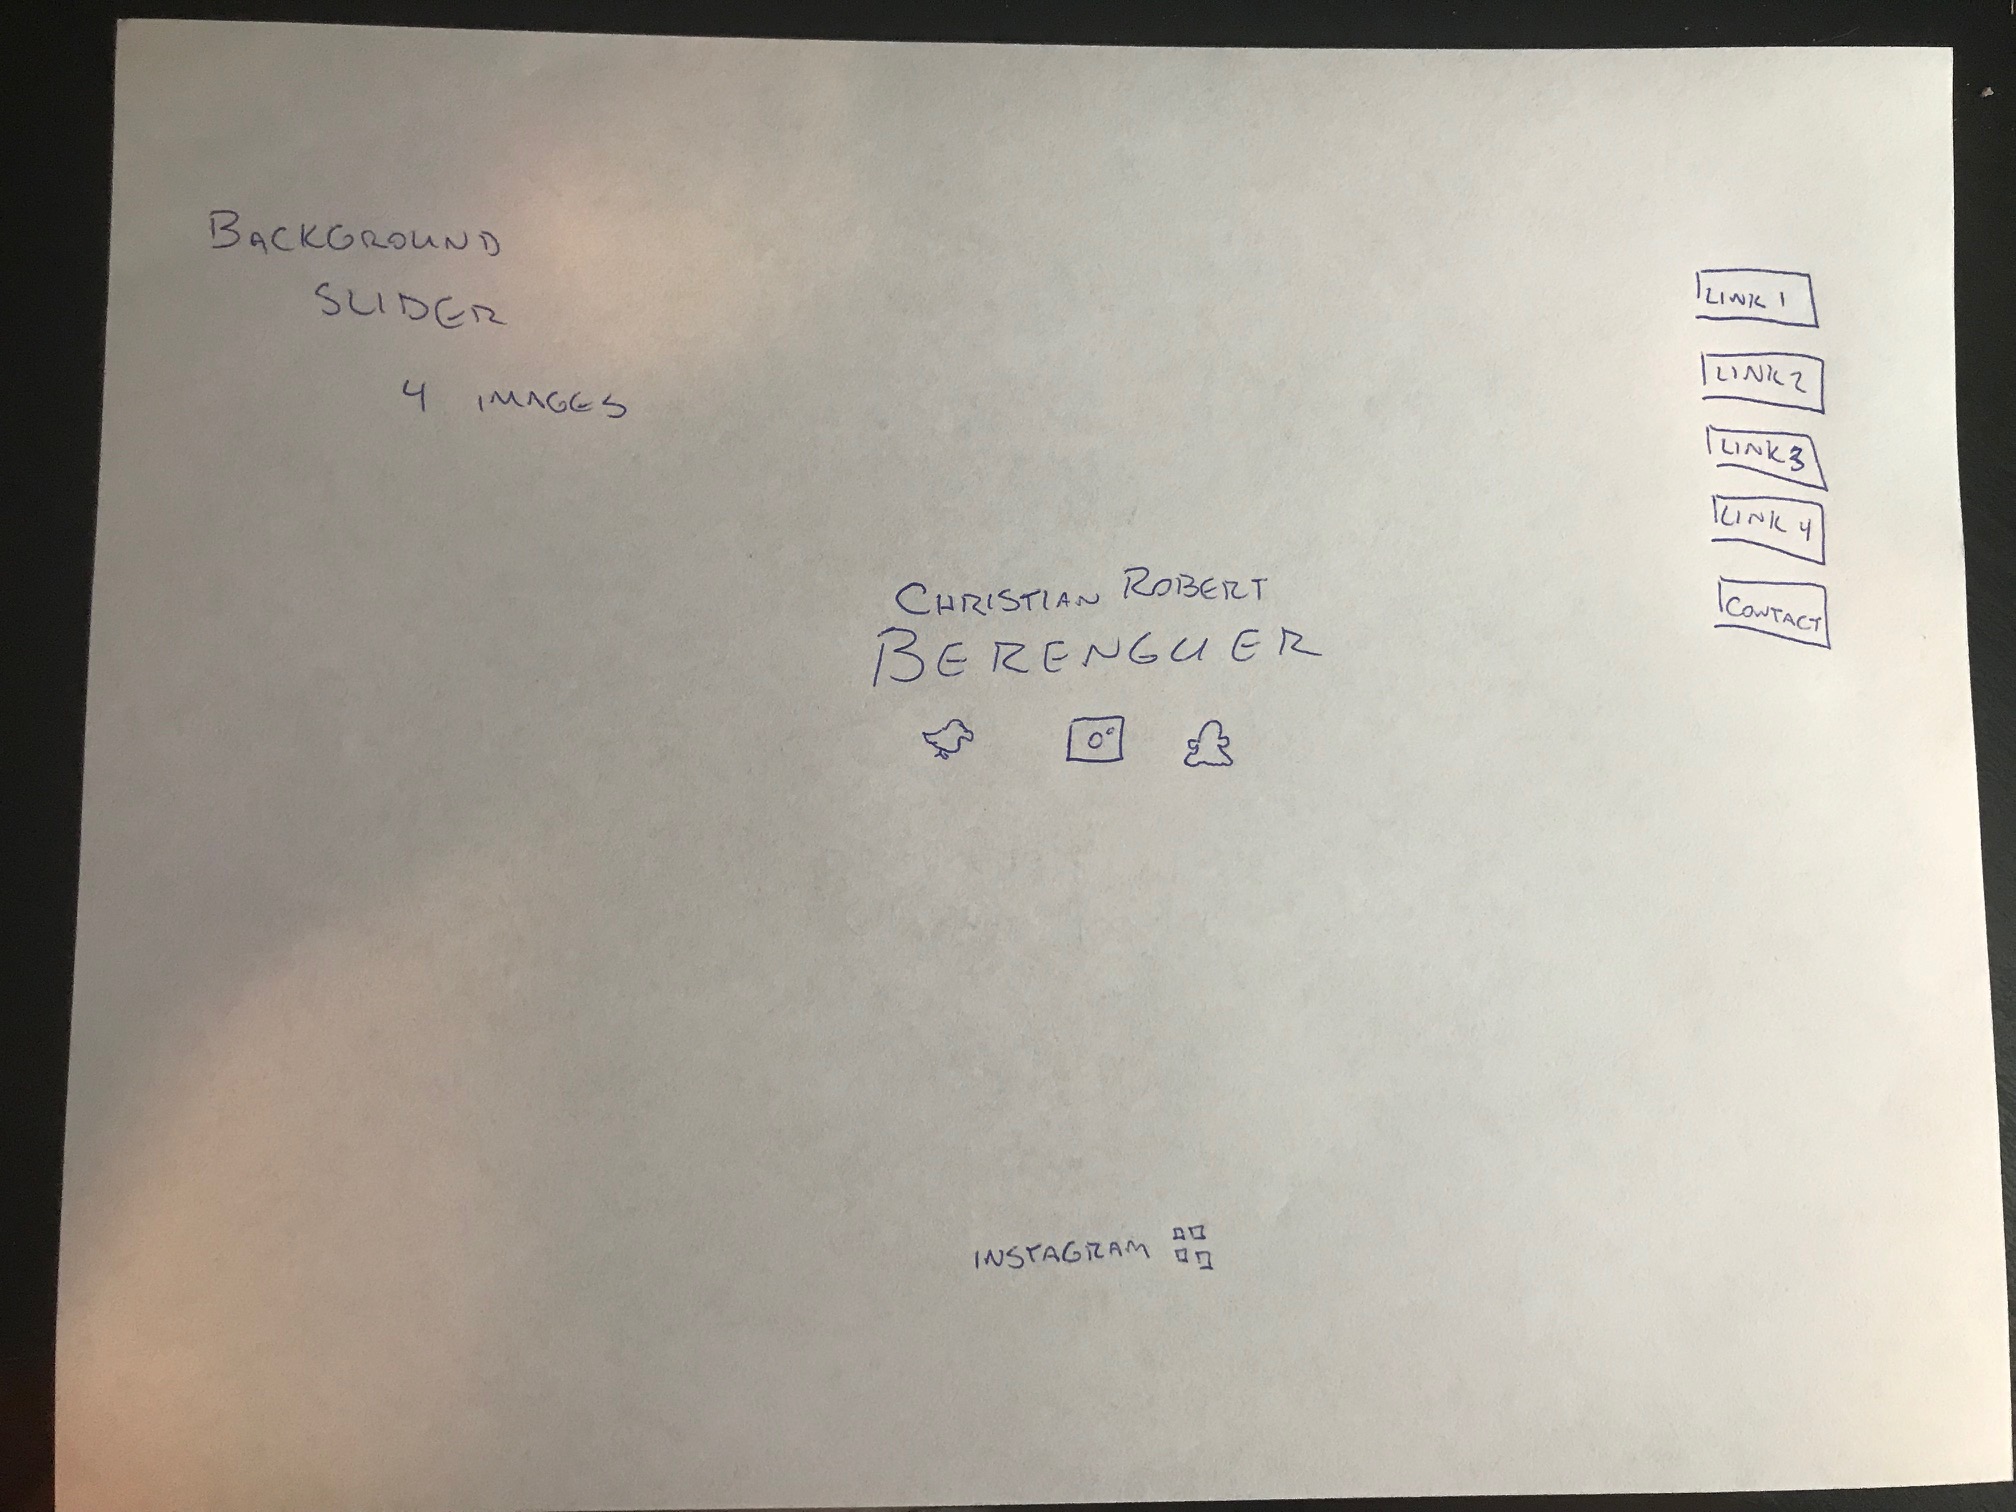 BACKGROUND
SLIDER
4 IMAGES
LINK 1
LINK 2
LINK 3
LINK 4
CONTACT
CHRISTIAN ROBERT
BERENGUER
INSTAGRAM